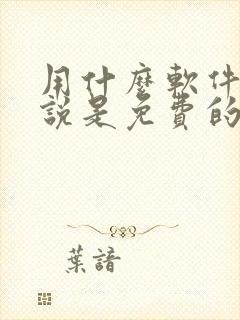 用什麼軟件
說是免費的
葉諳